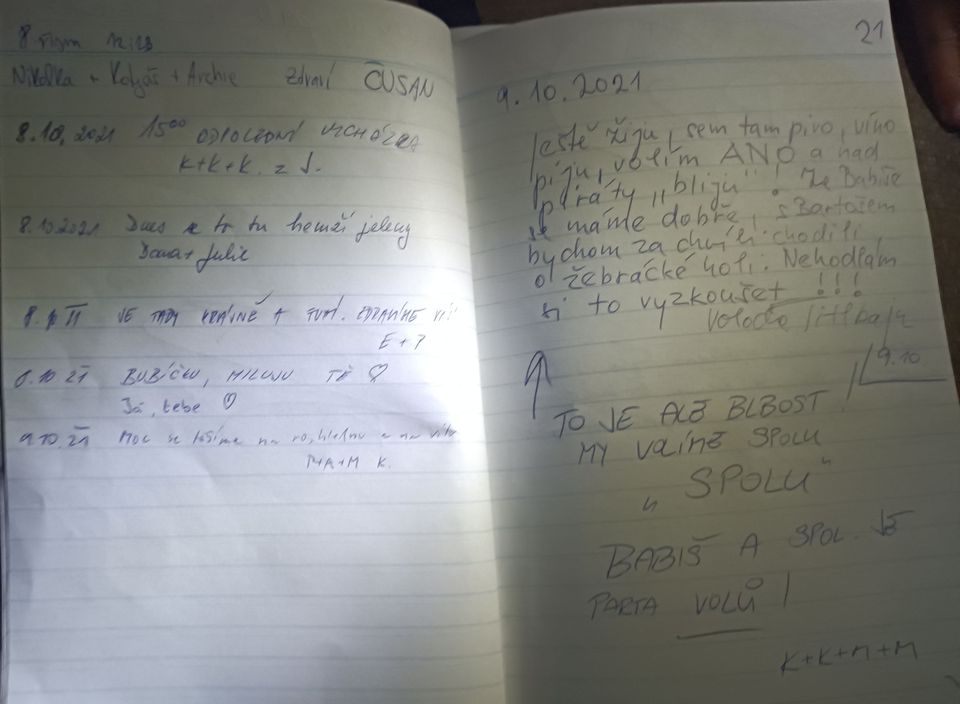 8
Nikolka + Kolјáš + Archie zdraví ČUSAN
8.10.2021 15⁰⁰ ODPOLEDNÍ VYCHÁZKA
K+K+K. z J.
8.10.2021 Dnes se to tu hemží jeleny
Dana + Julie
JE TADY KRÁSNĚ A ZDRAVÍME
E + ?
8.10 21 BUBÍČKU, MILUJU TĚ ♡
Já, tebe ♡
9.10.21 Moc se těšíme na rozhlednu a na
M+A+M K.
21
9.10.2021
Ještě žiju, sem tam pivo, víno
piju, volím ANO a nad
piráty „bliju"! Za Babiše
se máme dobře, s Bartošem
bychom za chvíli chodili
o žebrácké holi. Nehodlám
si to vyzkoušet !!!
9.10
TO JE ALE BLBOST!
MY VOLÍME SPOLU
„SPOLU"
BABIŠ A SPOL. JE
PARTA VOLŮ!
K+K+M+M